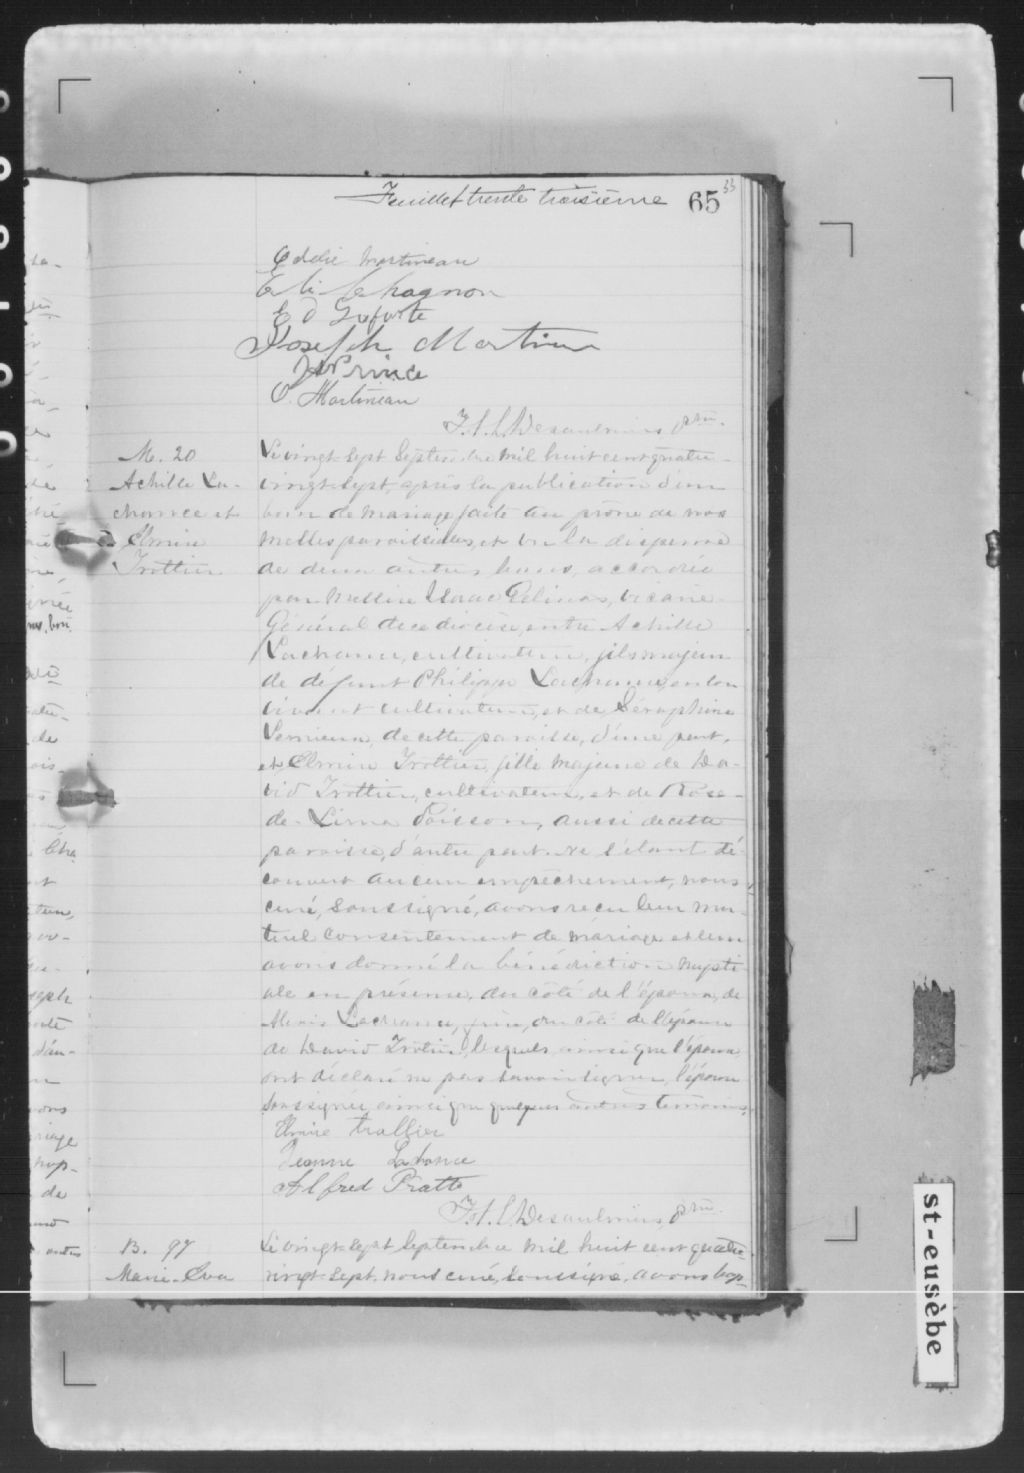 Feuillet trente troisième 65 33
Eddie Martineau
E. D. Laforte
Joseph Martineau
J N Prince
O. Martineau
F. X. L. Desaulniers ptre.
M. 20
Achille La-
chance et
Elmire
Trottier
Le vingt-sept Septembre mil huit cent quatre-
vingt-sept, après la publication d'un
bain de mariage faite au prône de nos
messes paroissiales, et vu la dispense
de deux autres bans, accordée
par Messire Isaac Gélinas, vicaire-
Général de ce diocèse, entre Achille
Lachance, cultivateur, fils majeur
de défunt Philippe Lachance, en son
vivant cultivateur, et de Séraphine
Lemieux, de cette paroisse, d'une part,
et Elmire Trottier, fille majeure de Da-
vid Trottier, cultivateur, et de Rose-
de-Lima Poisson, aussi de cette
paroisse, d'autre part. Ne s'étant dé-
couvert aucun empêchement, nous,
curé, soussigné, avons reçu leur mu-
tuel consentement de mariage et leur
avons donné la bénédiction nupti-
ale en présence, du côté de l'époux, de
Alexis Lachance, du côté de l'épouse
de David Trottier, lesquels, ainsi que l'époux
ont déclaré ne pas savoir signer, l'épouse
soussignée ainsi que quelques autres témoins.
Elmire Trottier
Jeanne
Alfred Pratte
F. X. L. Desaulniers, ptre.
B. 97
Marie-Eva
Le vingt-sept Septembre mil huit cent quatre-
vingt-sept, nous curé, soussigné, avons bap-
st-eusèbe